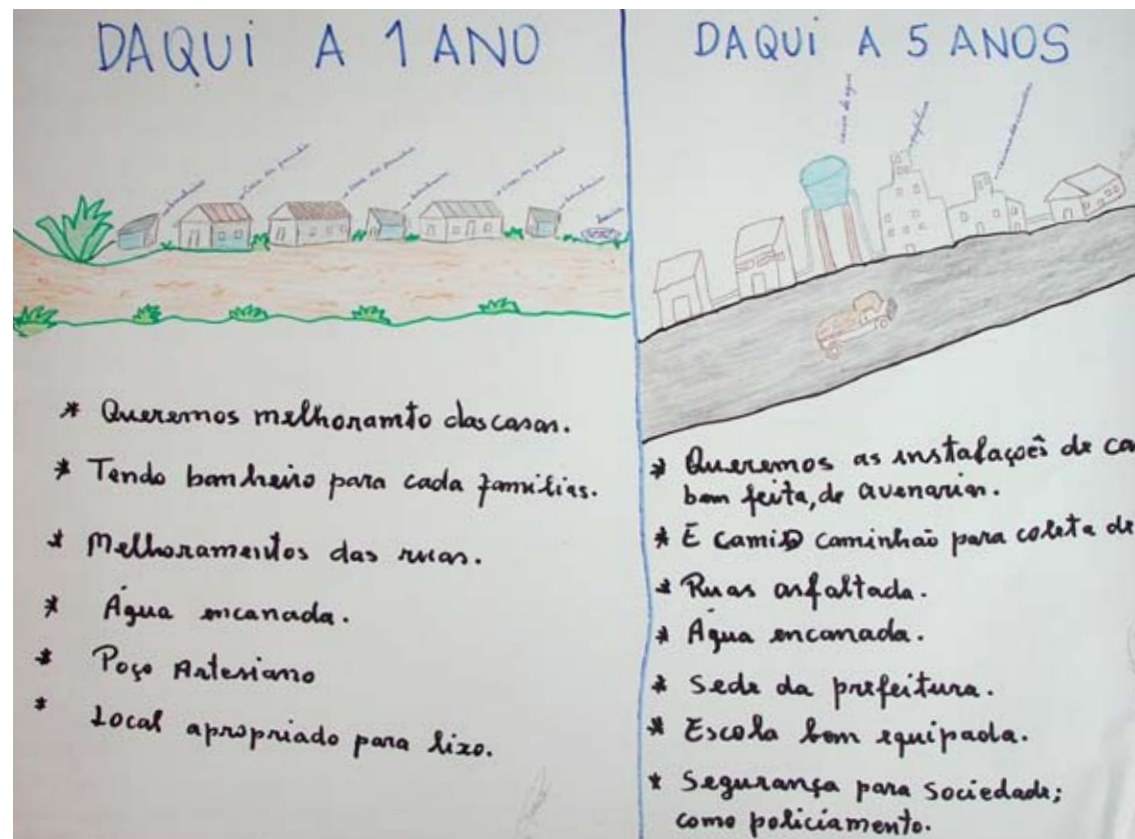 DAQUI A 1 ANO
* Queremos melhoramto das casas.
* Tendo banheiro para cada famílias.
* Melhoramentos das ruas.
* Água encanada.
* Poço Artesiano
* Local apropriado para lixo.
DAQUI A 5 ANOS
caixa de água
prefeitura
* Queremos as instalaçoês de ca
bem feita, de avenarias.
* E camia caminhão para coleta de
* Ruas asfaltada.
* Água encanada.
* Sede da prefeitura.
* Escola bem equipada.
* Segurança para sociedade;
como policiamento.